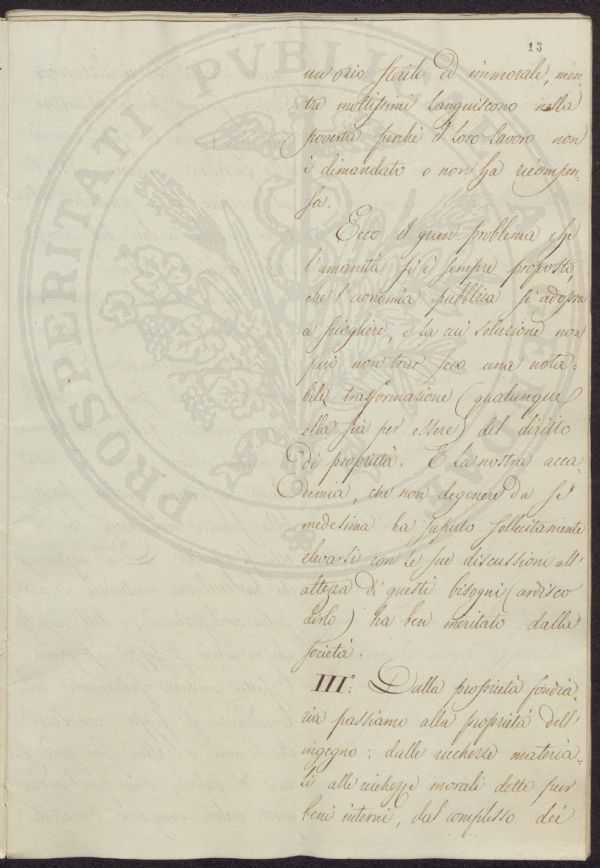 13
un'ozio sterile ed immorale, men-
tre moltissimi languiscono nella
povertà perchè il loro lavoro non
è dimandato o non ha ricompen-
sa.
Ecco il gran problema che
l'umanità si è sempre proposto,
che l'economia pubblica si adopra
a sciogliere, e la cui soluzione non
può non trar seco una nota-
bile trasformazione (qualunque
ella sia per essere) del diritto
di proprietà. E la nostra acca-
demia, che non degenere da se
medesima ha saputo sollecitamente
elevarsi con le sue discussioni all'
altezza di questi bisogni (ardisco
dirlo) ha ben meritato dalla
società.
III.° Dalla proprietà fondia-
ria passiamo alla proprietà dell'
ingegno: dalle ricchezze materia-
li alle ricchezze morali dette pur
beni interni, dal complesso dei
PROSPERITATI PVBLICAE